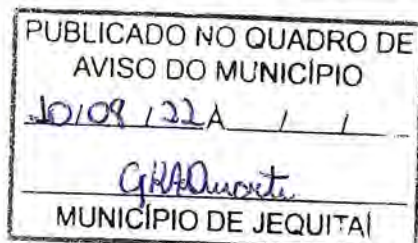 PUBLICADO NO QUADRO DE
AVISO DO MUNICÍPIO
10/08/22 A / /
MUNICÍPIO DE JEQUITAÍ